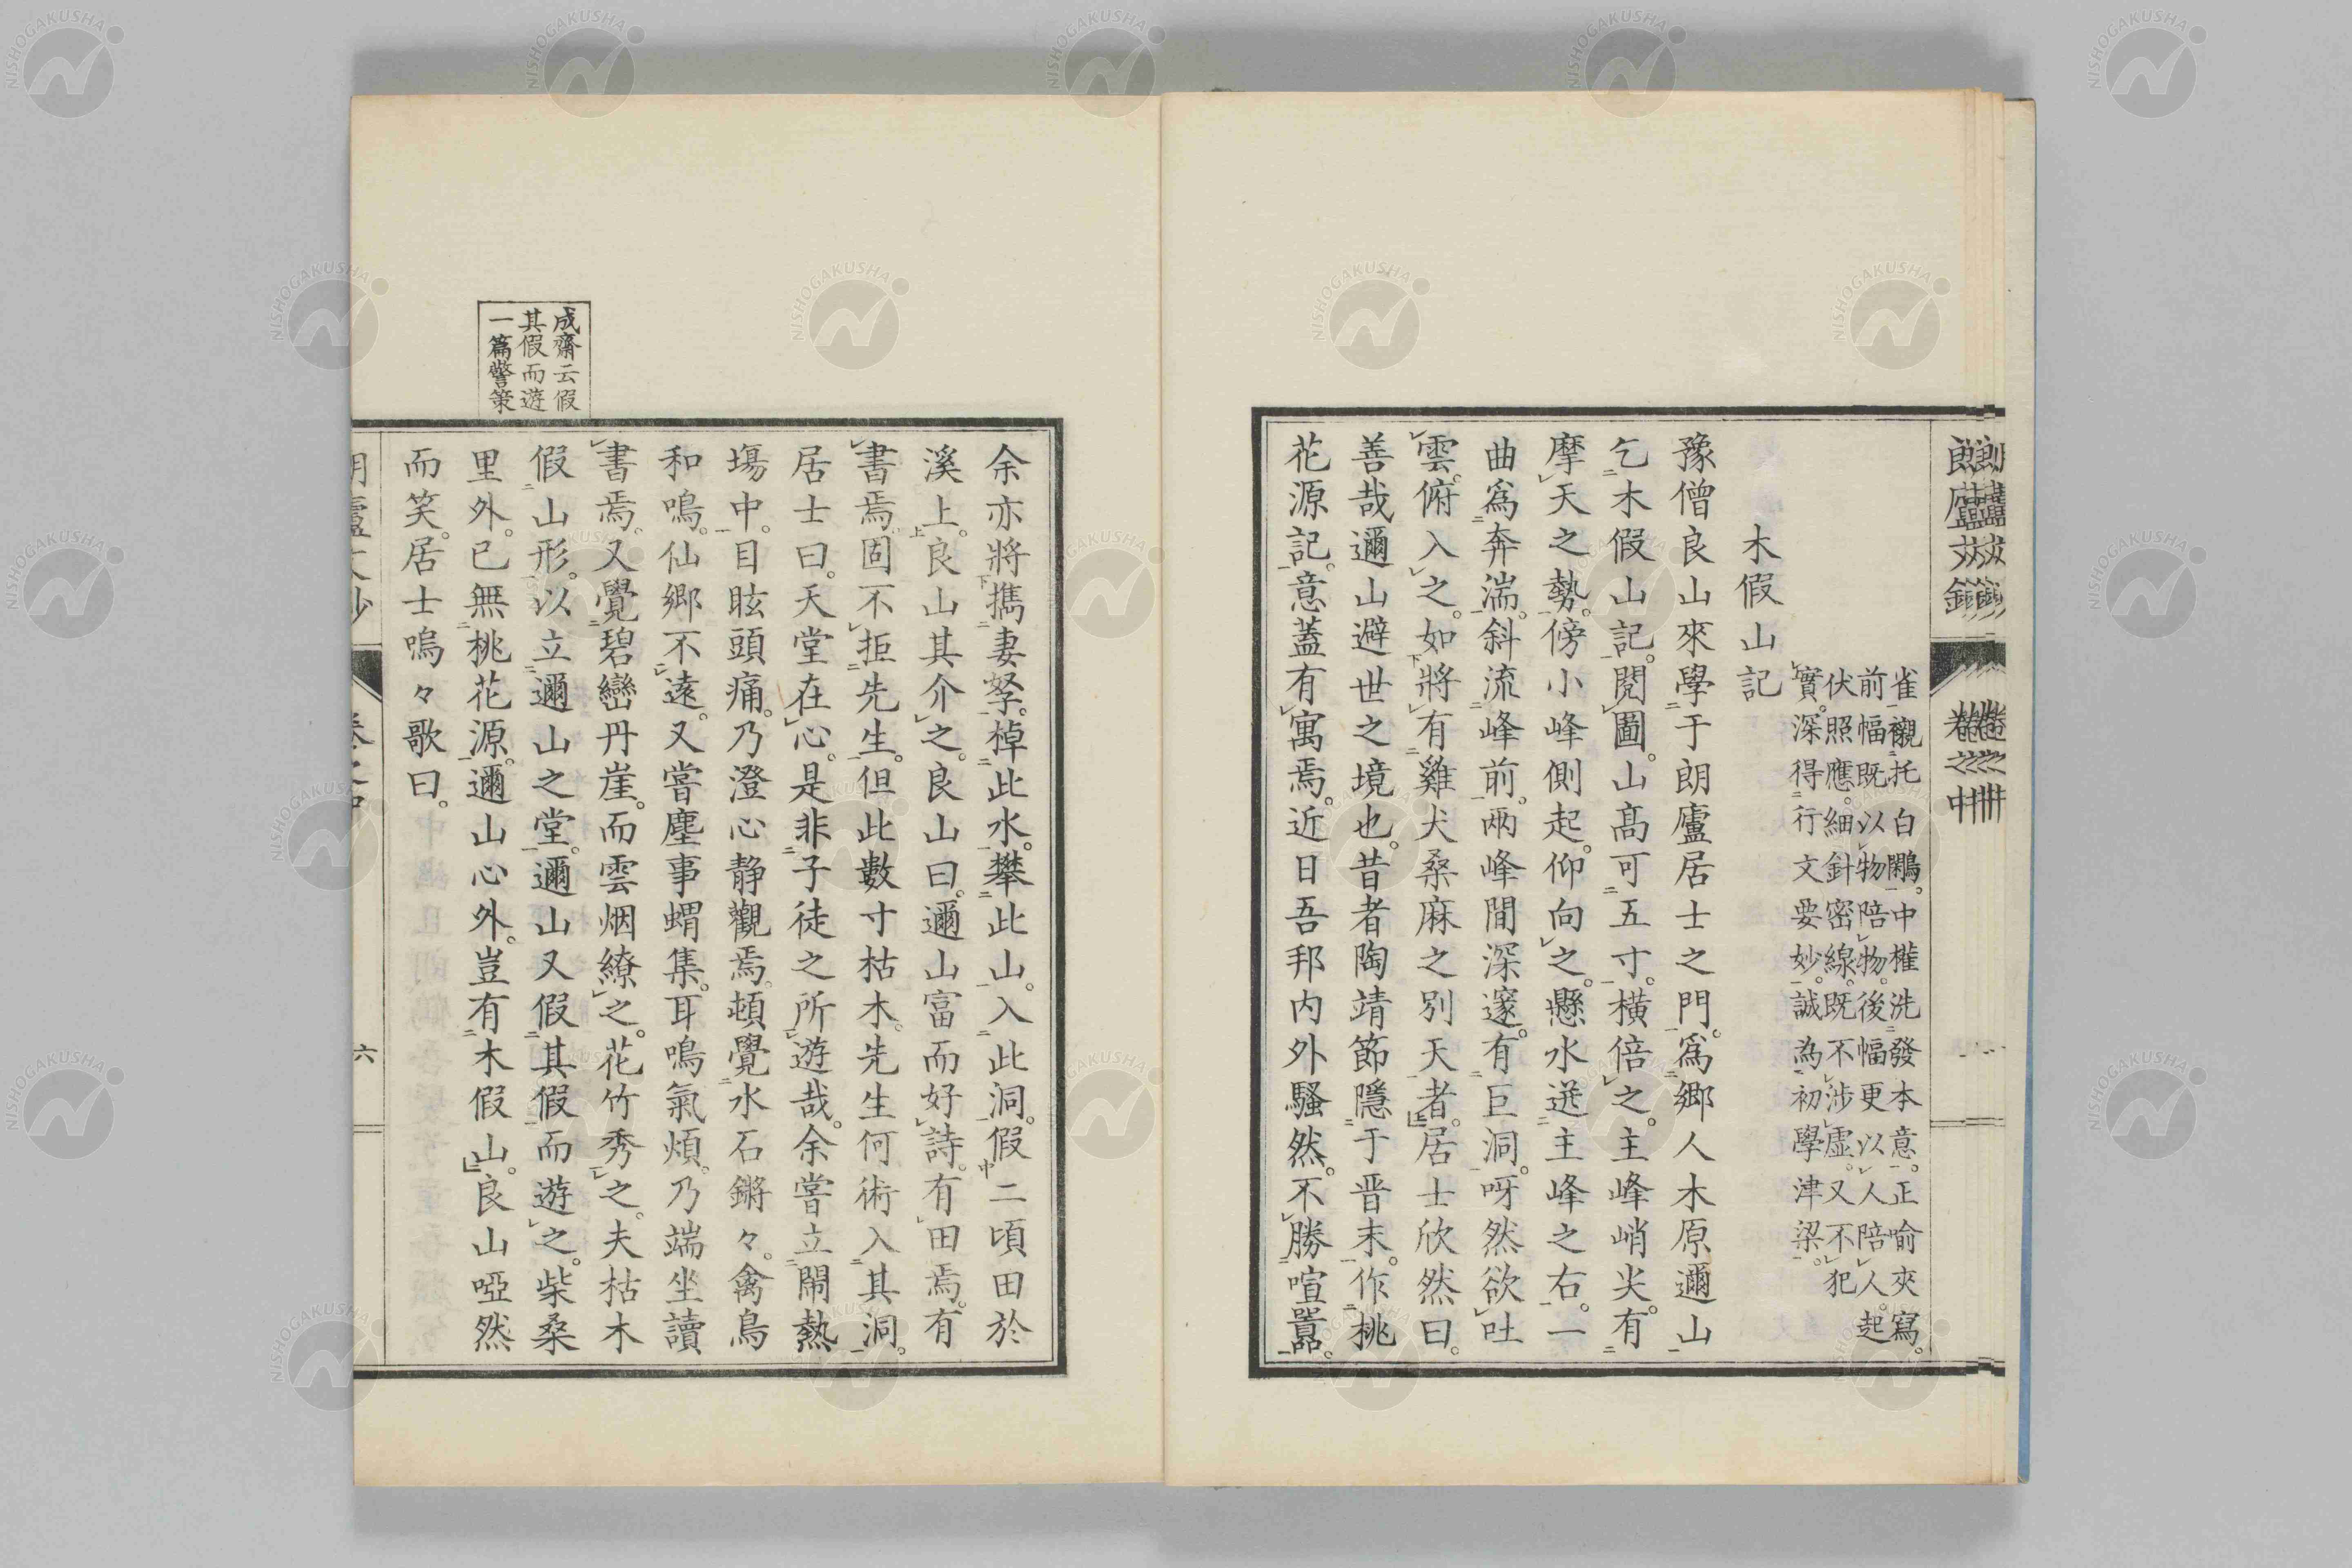 朗廬文鈔
卷之中
雀襯托白鷴。中權洗發本意。正喻夾寫。
前幅既以物陪物。後幅更以人陪人。起
伏照應。細針密線。既不涉虛。又不犯
實。深得行文要妙。誠為初學津梁。
木假山記
豫僧良山來學于朗廬居士之門。爲鄉人木原邇山
乞木假山記。閱圖。山高可五寸。橫倍之。主峰峭尖。有
摩天之勢。傍小峰側起。仰向之。懸水逬主峰之右。一
曲爲奔湍。斜流峰前。兩峰間深邃。有巨洞。呀然欲吐
雲。俯入之。如將有雞犬桑麻之別天者。居士欣然曰。
善哉邇山避世之境也。昔者陶靖節隱于晋末。作桃
花源記。意蓋有寓焉。近日吾邦内外騷然。不勝喧囂。
余亦將攜妻孥。棹此水。攀此山。入此洞。假二頃田於
溪上。良山其介之。良山曰。邇山富而好詩。有田焉。有
書焉。固不拒先生。但此數寸枯木。先生何術入其洞。
居士曰。天堂在心。是非子徒之所遊哉。余嘗立鬧熱
塲中。目眩頭痛。乃澄心静觀焉。頓覺水石鏘々。禽鳥
和鳴。仙鄉不遠。又嘗塵事蝟集。耳鳴氣煩。乃端坐讀
書焉。又覺碧巒丹崖。而雲烟繚之。花竹秀之。夫枯木
假山形。以立邇山之堂。邇山又假其假而遊之。柴桑
里外。已無桃花源。邇山心外。豈有木假山。良山啞然
而笑。居士嗚々歌曰。
成齋云假
其假而遊
一篇警策
六